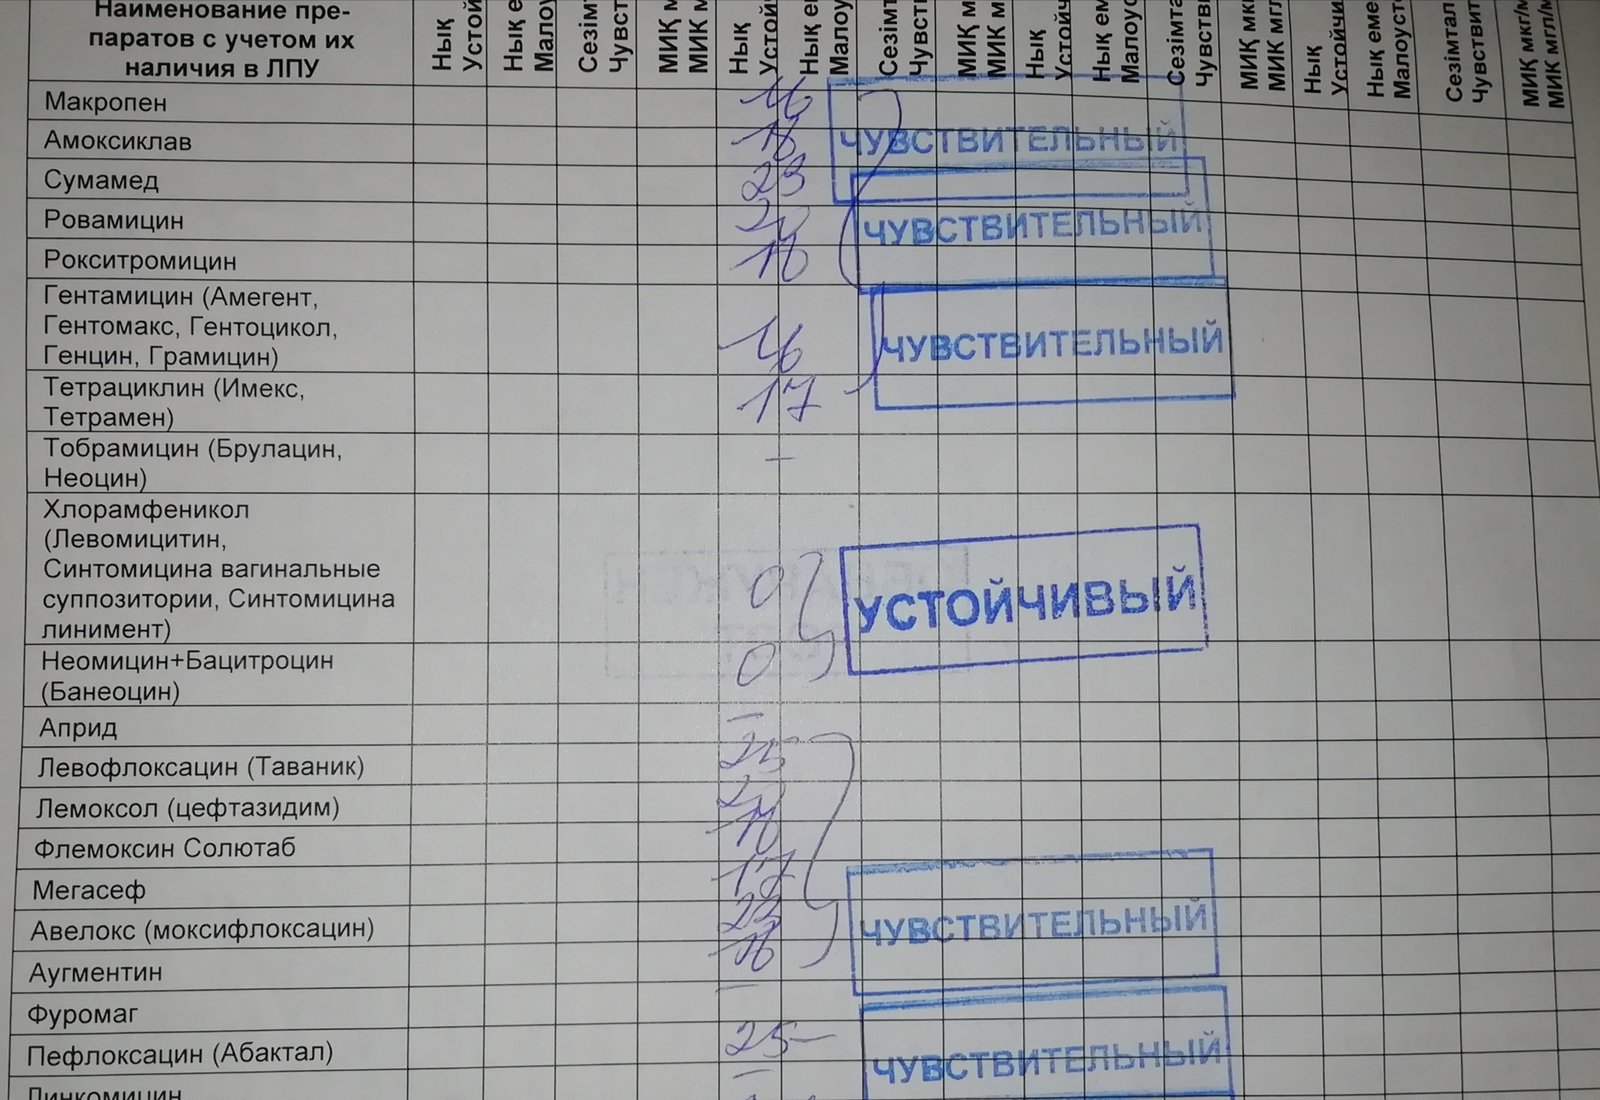 Наименование пре-
паратов с учетом их
наличия в ЛПУ
Нық
Устой
Нық е
Мало
Сезімт
Чувст
МИҚ м
МИК м
Нық
Устой
Нық е
Малоу
Сезімт
Чувств
МИҚ м
МИК м
Нық
Устойч
Нық ем
Малоус
Сезімта
Чувстви
МИҚ мк
МИК мг
Нық
Устойчи
Нық еме
Малоуст
Сезімтал
Чувствит
МИҚ мкг/м
МИК мгл/м
Макропен 16
Амоксиклав 18
ЧУВСТВИТЕЛЬНЫЙ
Сумамед 23
Ровамицин 20
ЧУВСТВИТЕЛЬНЫЙ
Рокситромицин 18
Гентамицин (Амегент,
Гентомакс, Гентоцикол,
Генцин, Грамицин) 16
ЧУВСТВИТЕЛЬНЫЙ
Тетрациклин (Имекс,
Тетрамен) 17
Тобрамицин (Брулацин, –
Неоцин)
Хлорамфеникол
(Левомицитин,
Синтомицина вагинальные 0
суппозитории, Синтомицина
линимент)
УСТОЙЧИВЫЙ
Неомицин+Бацитроцин 0
(Банеоцин)
Априд –
Левофлоксацин (Таваник) 25
Лемоксол (цефтазидим)
Флемоксин Солютаб 18
Мегасеф 17
Авелокс (моксифлоксацин) 23
ЧУВСТВИТЕЛЬНЫЙ
Аугментин 18
Фуромаг –
Пефлоксацин (Абактал) 25 –
ЧУВСТВИТЕЛЬНЫЙ
Линкомицин –